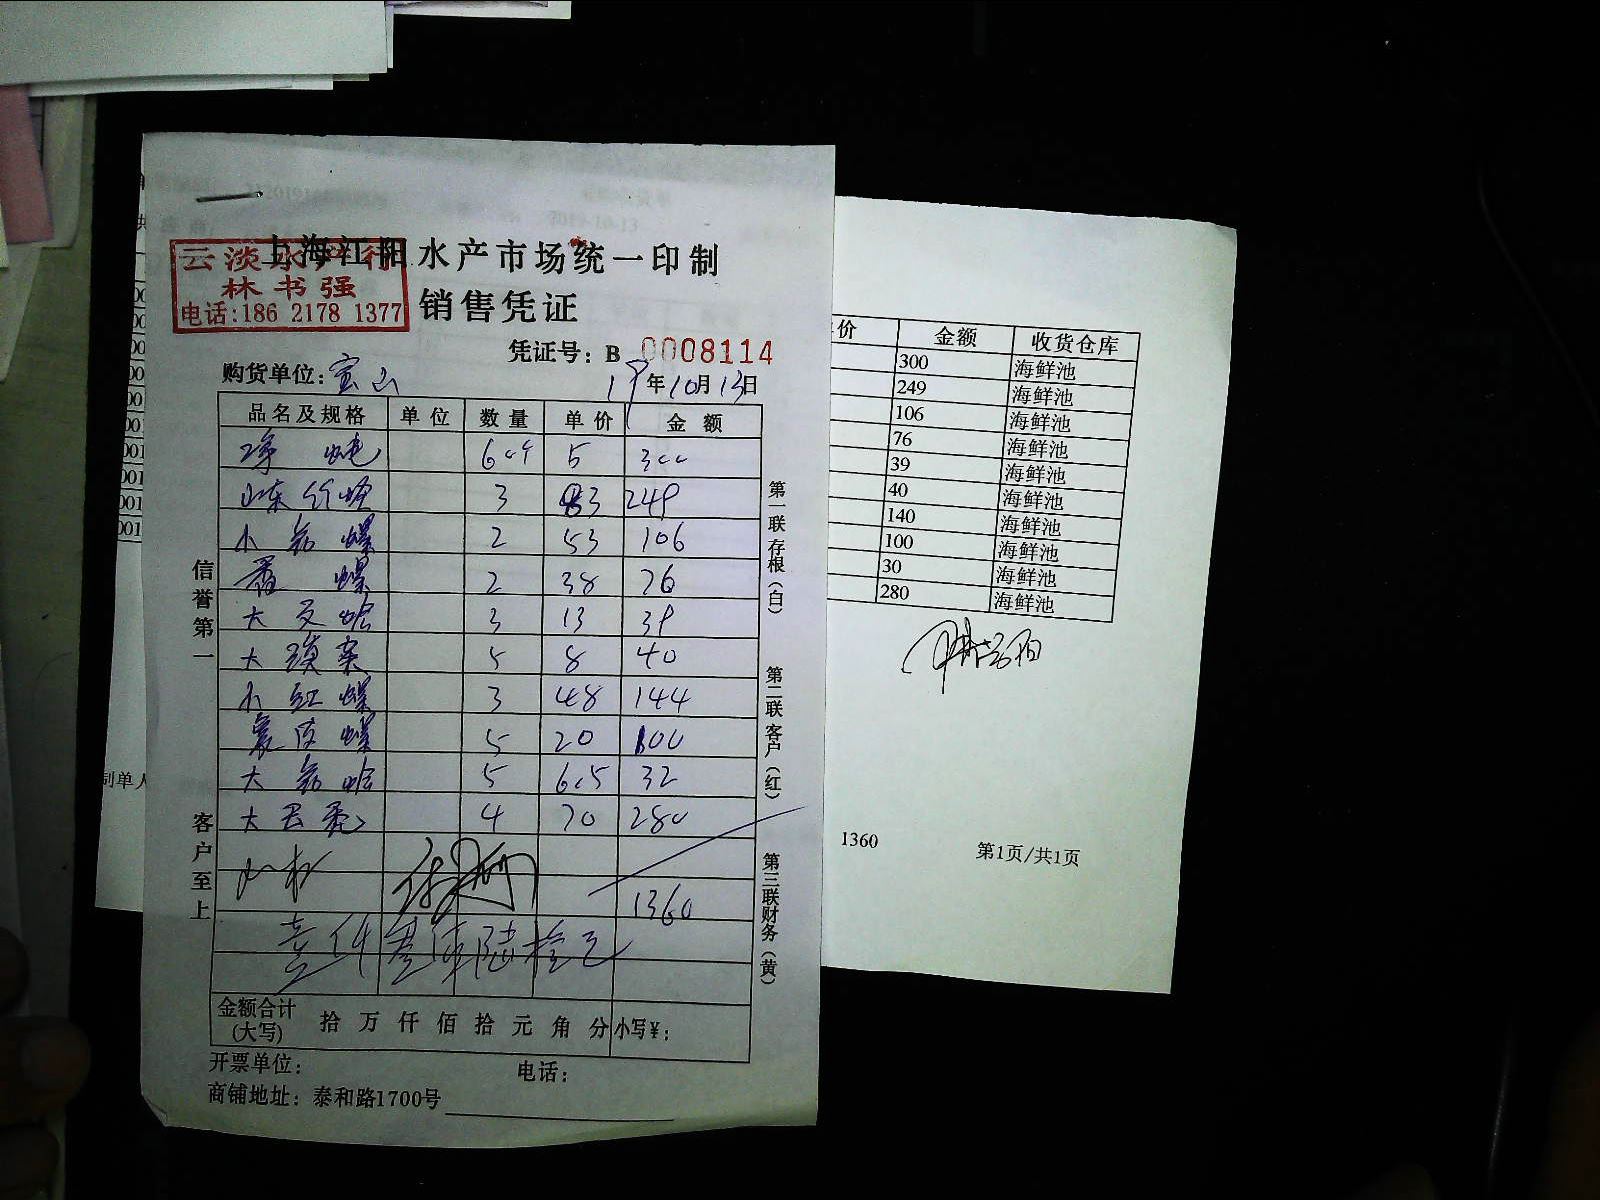 上海江阳水产市场统一印制
云淡水产行
林书强
电话:186 2178 1377
销售凭证
凭证号: B 0008114
购货单位: 宝山
19年10月13日
品名及规格 单位 数量 单价 金额
5 300
山东 3 83 249
小 螺 2 53 106
香螺 2 38 76
大 3 13 39
大 5 8 40
小红螺 3 48 144
螺 5 20 100
大 5 6.5 32
大 4 70 280
1360
壹仟叁佰陆拾元
金额合计(大写) 拾 万 仟 佰 拾 元 角 分 小写¥:
开票单位: 电话:
商铺地址: 泰和路1700号
信誉第一
客户至上
第一联存根(白)
第二联客户(红)
第三联财务(黄)
价 金额 收货仓库
300 海鲜池
249 海鲜池
106 海鲜池
76 海鲜池
39 海鲜池
40 海鲜池
140 海鲜池
100 海鲜池
30 海鲜池
280 海鲜池
制单人
1360
第1页/共1页